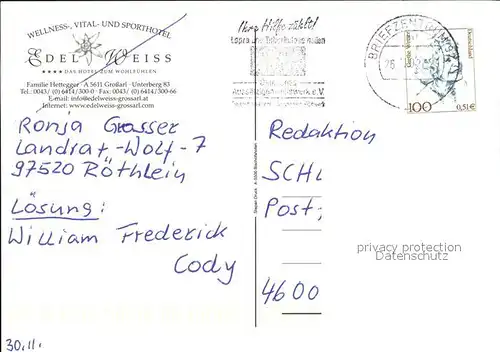 WELLNESS-, VITAL- UND SPORTHOTEL
EDEL WEISS
★★★★ DAS HOTEL ZUM WOHLFÜHLEN
Familie Hettegger · A 5611 Großarl · Unterberg 83
Tel.: 0043/ (0) 6414/300-0 · Fax: 0043/ (0) 6414/300-66
E-mail: info@edelweiss-grossarl.at
Internet: www.edelweiss-grossarl.com
Ronja Grasser
Landrat-Wolf-7
97520 Röthlein
Lösung:
William Frederick
Cody
30.11.
Ihre Hilfe zählt!
BRIEFZENTRUM 97
Deutschland
100
0,51€
Redaktion
SCHL
Post-
4600
privacy protection
Datenschutz